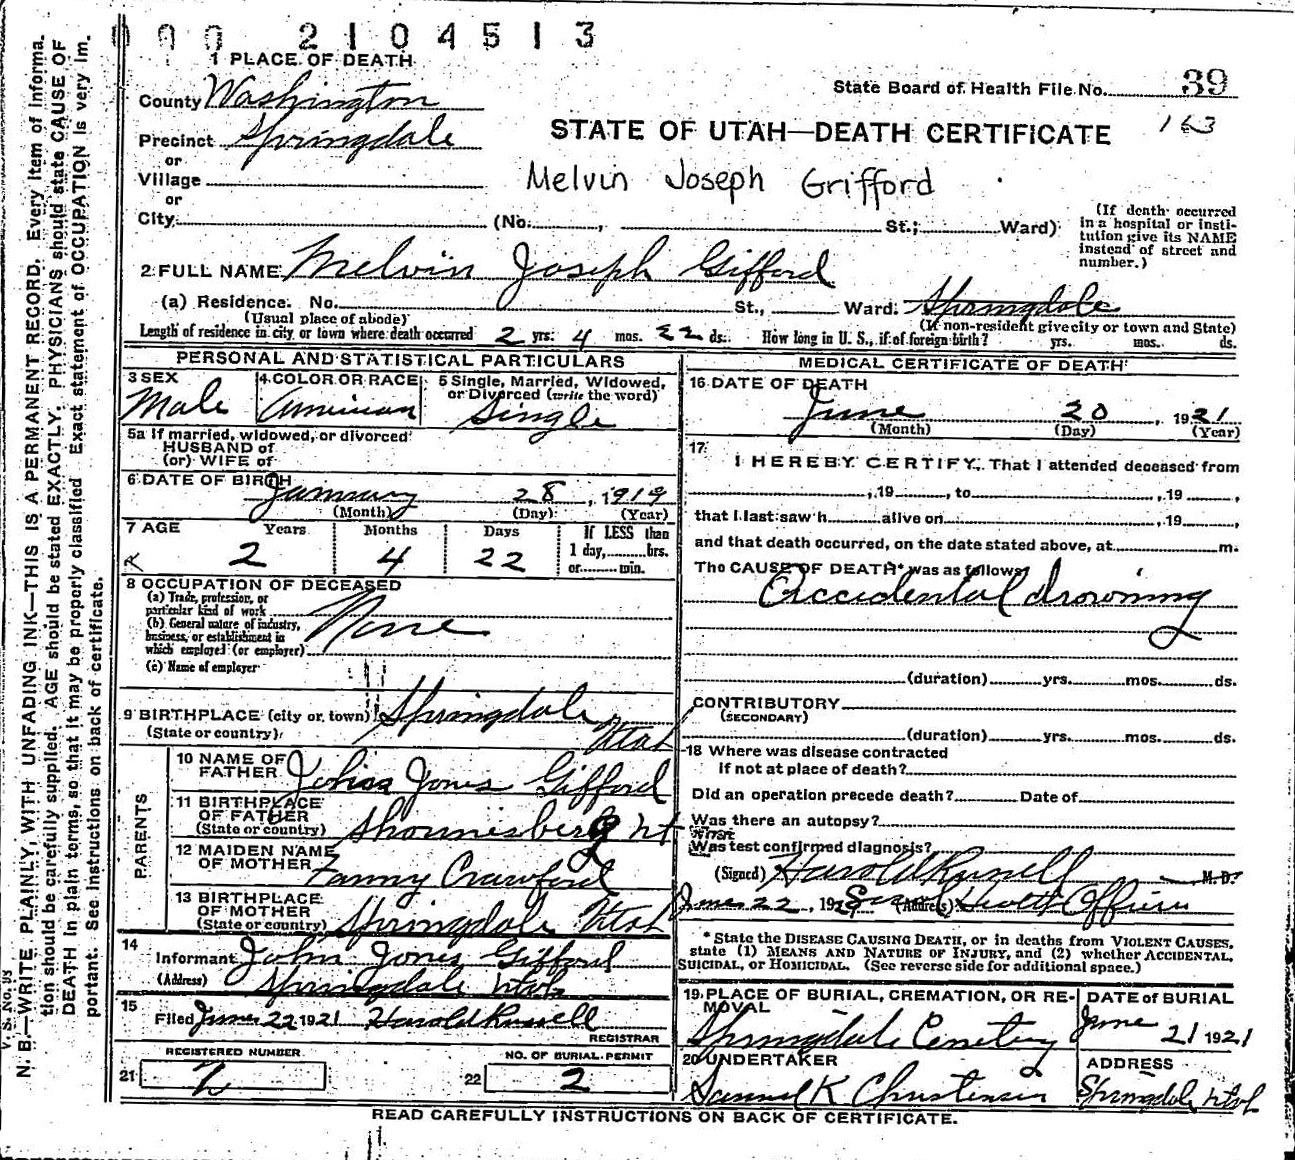 000 2104513
1 PLACE OF DEATH
County Washington
State Board of Health File No. 39
163
Precinct Springdale
STATE OF UTAH—DEATH CERTIFICATE
or
Village
Melvin Joseph Grifford
or
City (No. , St.; Ward)
(If death occurred in a hospital or insti-
tution give its NAME instead of street and number.)
2 FULL NAME Melvin Joseph Gifford
(a) Residence. No. St., Ward. Springdale
(Usual place of abode) (If non-resident give city or town and State)
Length of residence in city or town where death occurred 2 yrs. 4 mos. 22 ds. How long in U. S., if of foreign birth? yrs. mos. ds.
PERSONAL AND STATISTICAL PARTICULARS
3 SEX Male
4 COLOR OR RACE American
5 Single, Married, Widowed, or Divorced (write the word) Single
5a If married, widowed, or divorced
HUSBAND of
(or) WIFE of
6 DATE OF BIRTH January 28, 1919
(Month) (Day) (Year)
7 AGE Years Months Days If LESS than
2 4 22 1 day, hrs.
or min.
8 OCCUPATION OF DECEASED
(a) Trade, profession, or
particular kind of work
(b) General nature of industry,
business, or establishment in
which employed (or employer)
None
(c) Name of employer
9 BIRTHPLACE (city or town) Springdale
(State or country) Utah
PARENTS
10 NAME OF FATHER Jones Gifford
11 BIRTHPLACE OF FATHER
(State or country)
12 MAIDEN NAME OF MOTHER Fanny Crawford
13 BIRTHPLACE OF MOTHER
(State or country) Springdale Utah
14
Informant John Jones Gifford
(Address) Springdale Utah
15
Filed June 22 1921 Harold Russell
REGISTRAR
REGISTERED NUMBER
21 2
NO. OF BURIAL PERMIT
22 2
MEDICAL CERTIFICATE OF DEATH
16 DATE OF DEATH
June 20, 1921
(Month) (Day) (Year)
17
I HEREBY CERTIFY, That I attended deceased from
, 19 , to , 19 ,
that I last saw h alive on , 19 ,
and that death occurred, on the date stated above, at m.
The CAUSE OF DEATH* was as follows:
Accidental drowning
(duration) yrs. mos. ds.
CONTRIBUTORY
(SECONDARY)
(duration) yrs. mos. ds.
18 Where was disease contracted
if not at place of death?
Did an operation precede death? Date of
Was there an autopsy?
What
Was test confirmed diagnosis?
(Signed) Harold Russell M. D.
June 22, 19 (Address) Health Officer
* State the DISEASE CAUSING DEATH, or in deaths from VIOLENT CAUSES,
state (1) MEANS AND NATURE OF INJURY, and (2) whether ACCIDENTAL,
SUICIDAL, or HOMICIDAL. (See reverse side for additional space.)
19 PLACE OF BURIAL, CREMATION, OR RE-
MOVAL
Springdale Cemetery
DATE of BURIAL
June 21 1921
20 UNDERTAKER
Samuel K Christensen
ADDRESS
Springdale Utah
READ CAREFULLY INSTRUCTIONS ON BACK OF CERTIFICATE.
V. S. No. 95
N. B.—WRITE PLAINLY, WITH UNFADING INK—THIS IS A PERMANENT RECORD. Every item of informa-
tion should be carefully supplied. AGE should be stated EXACTLY. PHYSICIANS should state CAUSE OF
DEATH in plain terms, so that it may be properly classified. Exact statement of OCCUPATION is very im-
portant. See instructions on back of certificate.